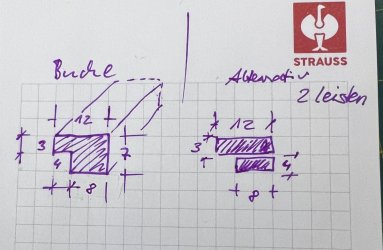 STRAUSS
Buche
Alternativ
2 Leisten
12
3
4
7
8
12
3
4
8